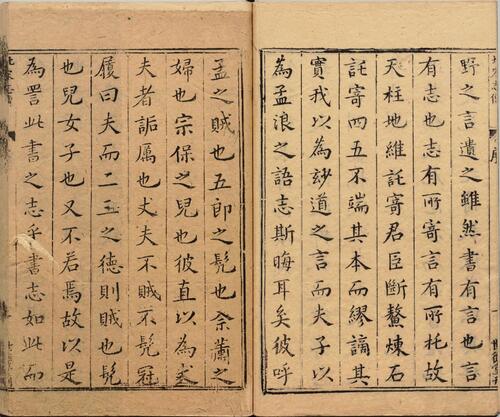 野之言遺之雖然書有言也言
有志也志有所寄言有所托故
天柱地維託寄君臣斷鰲煉石
託寄四五不端其本而繆謫其
實我以為玅道之言而夫子以
為孟浪之語志斯晦耳矣彼呼
孟之賊也五郎之髡也余蘭之
婦也宗保之兒也彼直以為丈
夫者詬厲也丈夫不賊不髡冠
履曰夫而二王之德則賊也髡
也兒女子也又不若焉故以是
為詈此書之志乎書志如此而
序